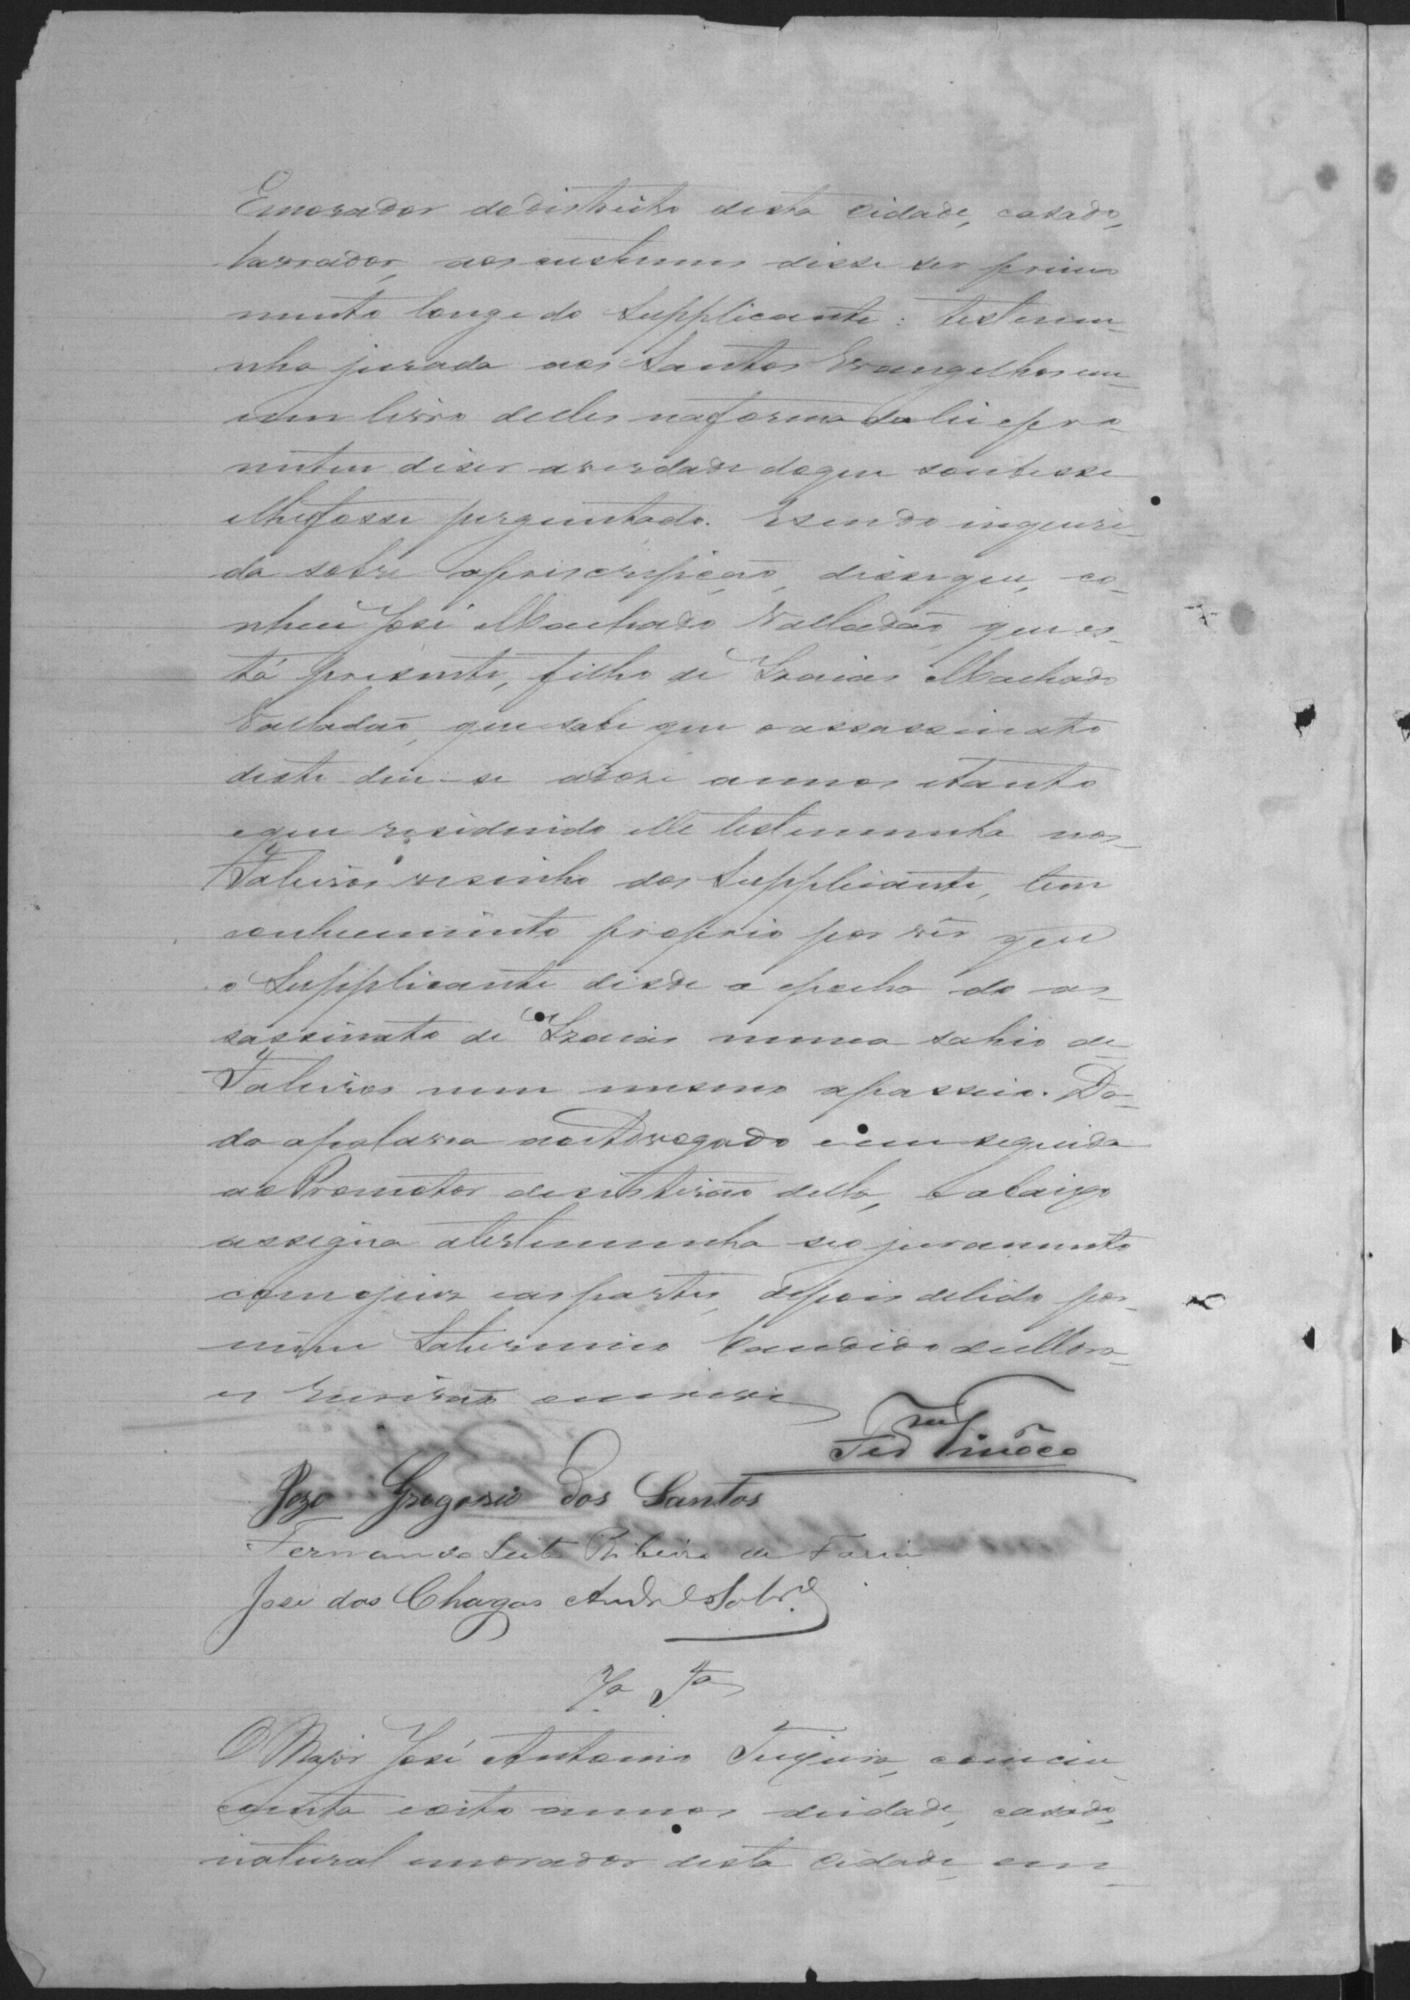 E morador do districto desta cidade, casado,
lavrador, aos custumes disse ser primo
muito longe do Supplicante: testemu-
nha jurada aos Santos Evangelhos em
um livro delles na forma da lei e pro-
meteu diser a verdade do que soubesse
e lhe fosse perguntado. E sendo inqueri-
da sobre a priscripção, disse que, co-
nheci José Machado Valladão, que es-
tá presente, filho de Izaias Machado
Valladão, que sabe que o assassinato
deste deu-se a annos e tanto
e que residindo elle testemunha nos
Taboões vesinho dos Supplicante, tem
conhecimento proprio por vêr que
o Supplicante desde a epocha do as-
sassinato de Izaias nunca sahio de
Taboões nem mesmo a passeio. Da-
da a palavra ao Advogado e em seguida
ao Promotor desistirão della, e abaixo
assigna a testemunha seo juramento
com o juiz e as partes, depois de lido por
mim Saturnino Candido de Mora-
es Escrivão escrevi
Tinôco
Jozo Gregorio dos Santos
Fernando Leite Ribeiro de Faria
José das Chagas Andre Sobr.º
7ª Ta
O Major José Antonio Teixeira, com cin-
coenta e oito annos de idade, casado,
natural e morador desta Cidade, em-